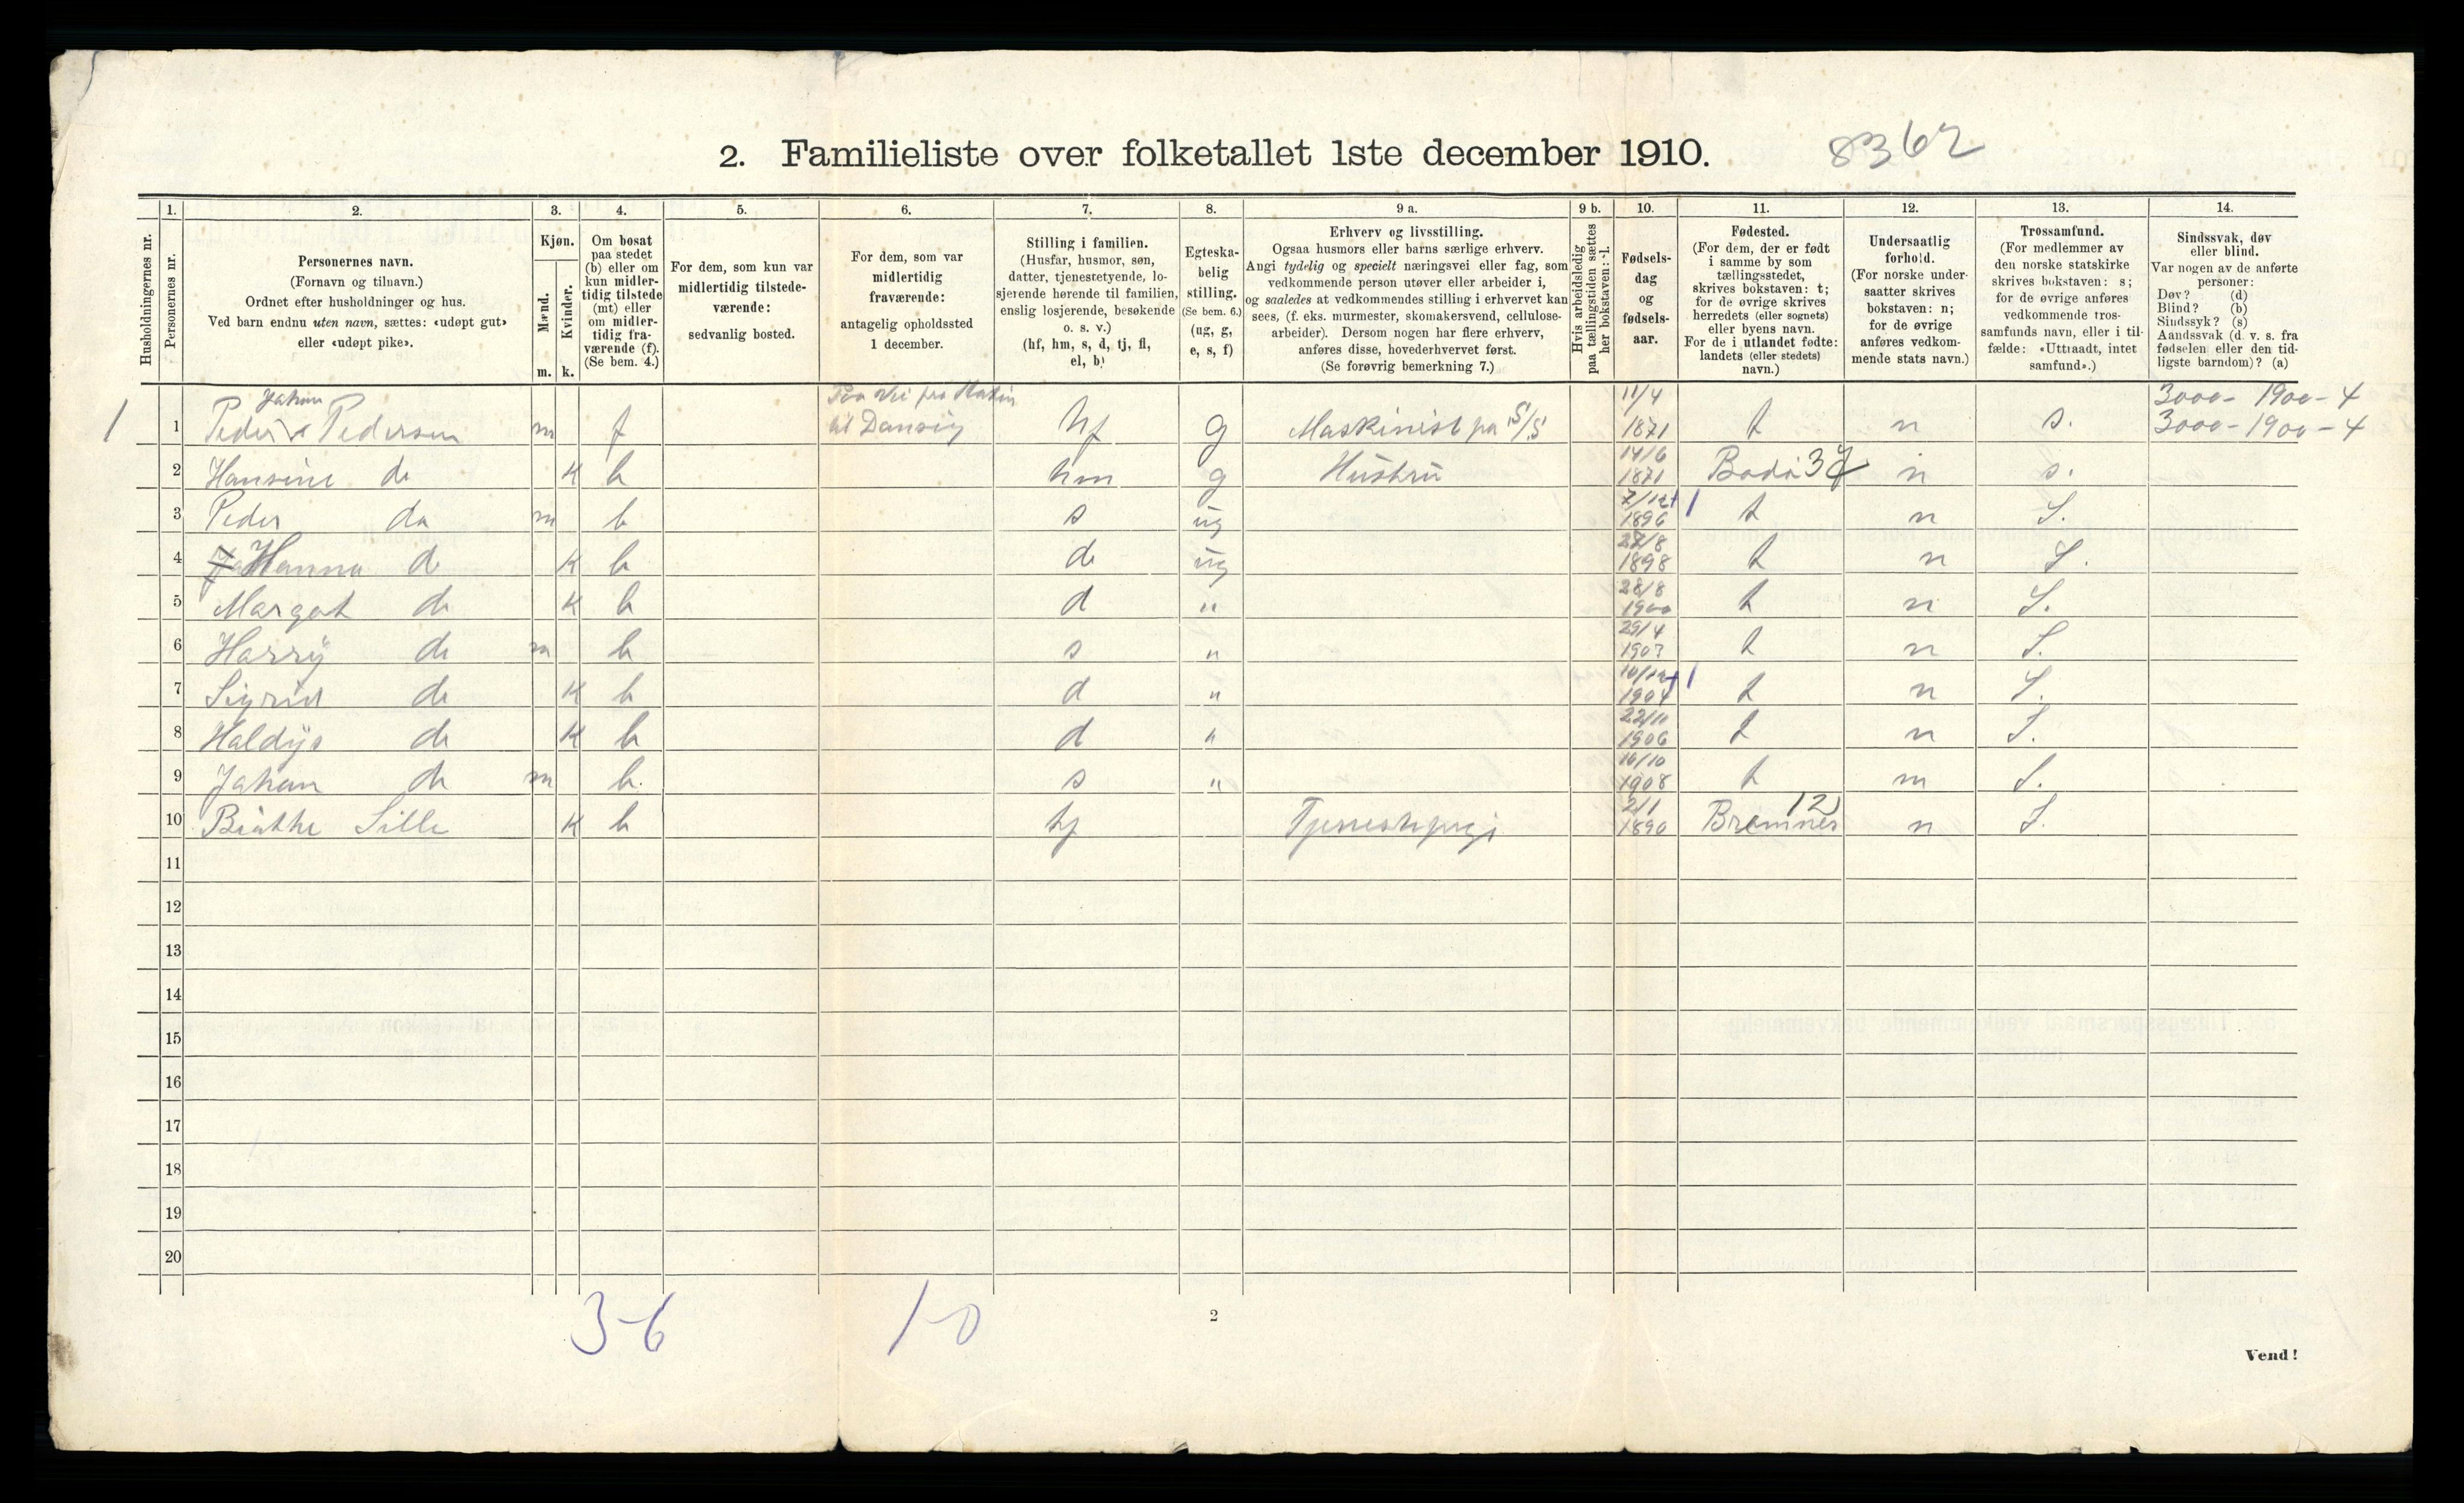 2. Familieliste over folketallet 1ste december 1910. 8362
Husholdningernes nr.
1. Personernes nr.
2. Personernes navn.
(Fornavn og tilnavn.)
Ordnet efter husholdninger og hus.
Ved barn endnu uten navn, sættes: «udøpt gut»
eller «udøpt pike».
3. Kjøn.
Mænd. m.
Kvinder. k.
4. Om bosat
paa stedet
(b) eller om
kun midler-
tidig tilstede
(mt) eller
om midler-
tidig fra-
værende (f).
(Se bem. 4.)
5. For dem, som kun var
midlertidig tilstede-
værende:
sedvanlig bosted.
6. For dem, som var
midlertidig
fraværende:
antagelig opholdssted
1 december.
7. Stilling i familien.
(Husfar, husmor, søn,
datter, tjenestetyende, lo-
sjerende hørende til familien,
enslig losjerende, besøkende
o. s. v.)
(hf, hm, s, d, tj, fl,
el, b)
8. Egteska-
belig
stilling.
(Se bem. 6.)
(ug, g,
e, s, f)
9 a. Erhverv og livsstilling.
Ogsaa husmors eller barns særlige erhverv.
Angi tydelig og specielt næringsvei eller fag, som
vedkommende person utøver eller arbeider i,
og saaledes at vedkommendes stilling i erhvervet kan
sees, (f. eks. murmester, skomakersvend, cellulose-
arbeider). Dersom nogen har flere erhverv,
anføres disse, hovederhvervet først.
(Se forøvrig bemerkning 7.)
9 b. Hvis arbeidsledig
paa tællingstiden sættes
her bokstaven: l.
10. Fødsels-
dag
og
fødsels-
aar.
11. Fødested.
(For dem, der er født
i samme by som
tællingsstedet,
skrives bokstaven: t;
for de øvrige skrives
herredets (eller sognets)
eller byens navn.
For de i utlandet fødte:
landets (eller stedets)
navn.)
12. Undersaatlig
forhold.
(For norske under-
saatter skrives
bokstaven: n;
for de øvrige
anføres vedkom-
mende stats navn.)
13. Trossamfund.
(For medlemmer av
den norske statskirke
skrives bokstaven: s;
for de øvrige anføres
vedkommende tros-
samfunds navn, eller i til-
fælde: «Uttraadt, intet
samfund».)
14. Sindssvak, døv
eller blind.
Var nogen av de anførte
personer:
Døv? (d)
Blind? (b)
Sindssyk? (s)
Aandssvak (d. v. s. fra
fødselen eller den tid-
ligste barndom)? (a)
Johan 11/4 3000 - 1900 - 4
1 1 Peder Pedersen m f til Danzig hf g Maskinist pa S/S 1871 t n s. 3000 - 1900 - 4
14/6
2 Hansine do K b hm g Hustru 1871 Bodø 37 n s.
7/12 1
3 Peder do m b s ug 1896 t n S.
27/8
4 Hanna do K b d ug 1898 t n S.
28/8
5 Margot do K b d " 1900 t n S.
29/4
6 Harry do m b s " 1903 t n S.
10/12 1
7 Sigrid do K b d " 1904 t n S.
22/11
8 Haldis do K b d " 1906 t n S.
10/10
9 Johan do m b. s " 1908 t n S.
2/1 12
10 K b tj 1890 Bremnes n S.
11
12
13
14
15
16
17
18
19
20
3-6 1-0
2
Vend!